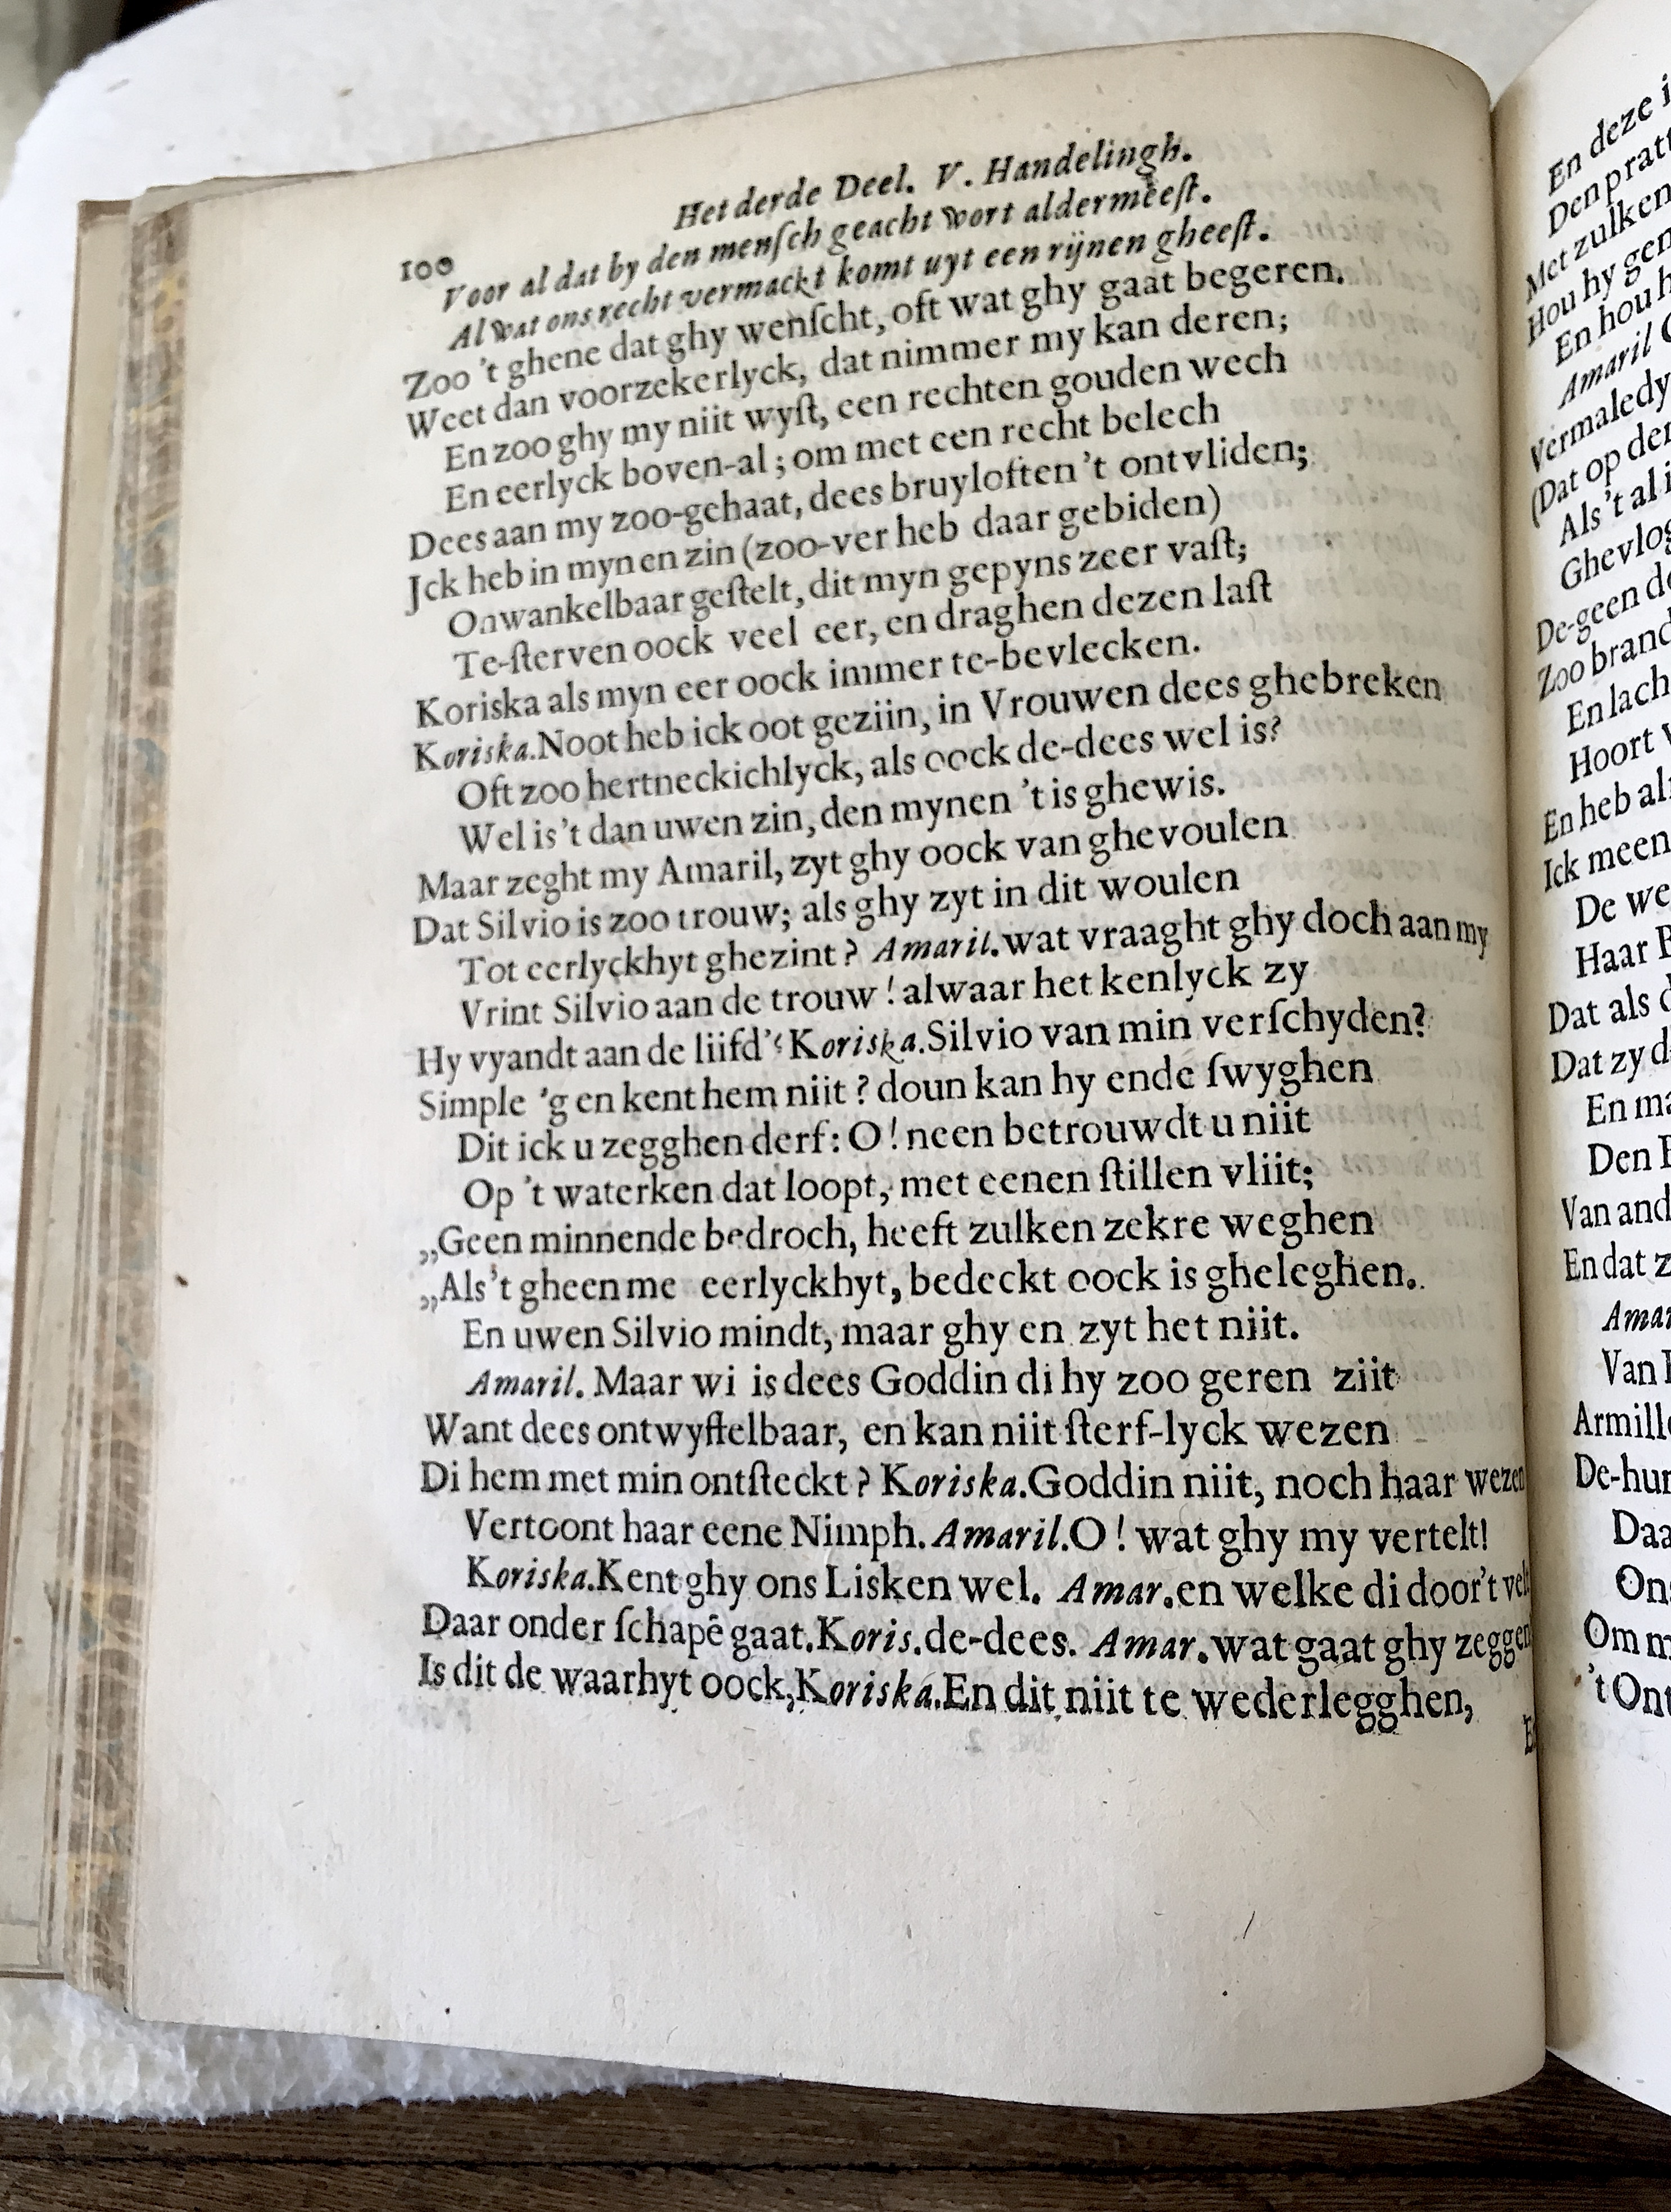 100 Het derde Deel. V. Handelingh.
Voor al dat by den menſch geacht wort aldermeeſt.
Al wat ons recht vermackt komt uyt een rijnen gheeſt.
Zoo 't ghene dat ghy wenſcht, oft wat ghy gaat begeren.
Weet dan voorzekerlyck, dat nimmer my kan deren;
En zoo ghy my niit wyſt, een rechten gouden wech
En eerlyck boven-al; om met een recht belech
Dees aan my zoo-gehaat, dees bruyloften 't ontvliden;
Jck heb in mynen zin (zoo-ver heb daar gebiden)
Onwankelbaar geſtelt, dit myn gepyns zeer vaſt;
Te-ſterven oock veel eer, en draghen dezen laſt
Koriska als myn eer oock immer te-bevlecken.
Koriska. Noot heb ick oot geziin, in Vrouwen dees ghebreken
Oft zoo hertneckichlyck, als oock de-dees wel is?
Wel is 't dan uwen zin, den mynen 't is ghewis.
Maar zeght my Amaril, zyt ghy oock van ghevoulen
Dat Silvio is zoo trouw; als ghy zyt in dit woulen
Tot eerlyckhyt ghezint? Amaril. wat vraaght ghy doch aan my
Vrint Silvio aan de trouw! alwaar het kenlyck zy
Hy vyandt aan de liifd' Koriska. Silvio van min verſchyden?
Simple 'g en kent hem niit? doun kan hy ende ſwyghen
Dit ick u zegghen derf: O! neen betrouwdt u niit
Op 't waterken dat loopt, met eenen ſtillen vliit;
„Geen minnende bedroch, heeft zulken zekre weghen
„Als 't gheen me eerlyckhyt, bedeckt oock is gheleghen.
En uwen Silvio mindt, maar ghy en zyt het niit.
Amaril. Maar wi is dees Goddin di hy zoo geren ziit
Want dees ontwyffelbaar, en kan niit ſterf-lyck wezen
Di hem met min ontſteckt? Koriska. Goddin niit, noch haar wezen
Vertoont haar eene Nimph. Amaril. O! wat ghy my vertelt!
Koriska. Kent ghy ons Lisken wel. Amar. en welke di door't velt
Daar onder ſchapē gaat. Koris. de-dees. Amar. wat gaat ghy zeggen
Is dit de waarhyt oock, Koriska. En dit niit te wederlegghen,
En deze
Den
Met zulken
Hou hy
En hou
Amaril
(Dat op
Als 't al
De-geen
Zoo
En lach
Hoort
En heb
Ick meen
De
Haar
Dat als
Dat zy
En
Den
Van
En dat
Van
De-
Om